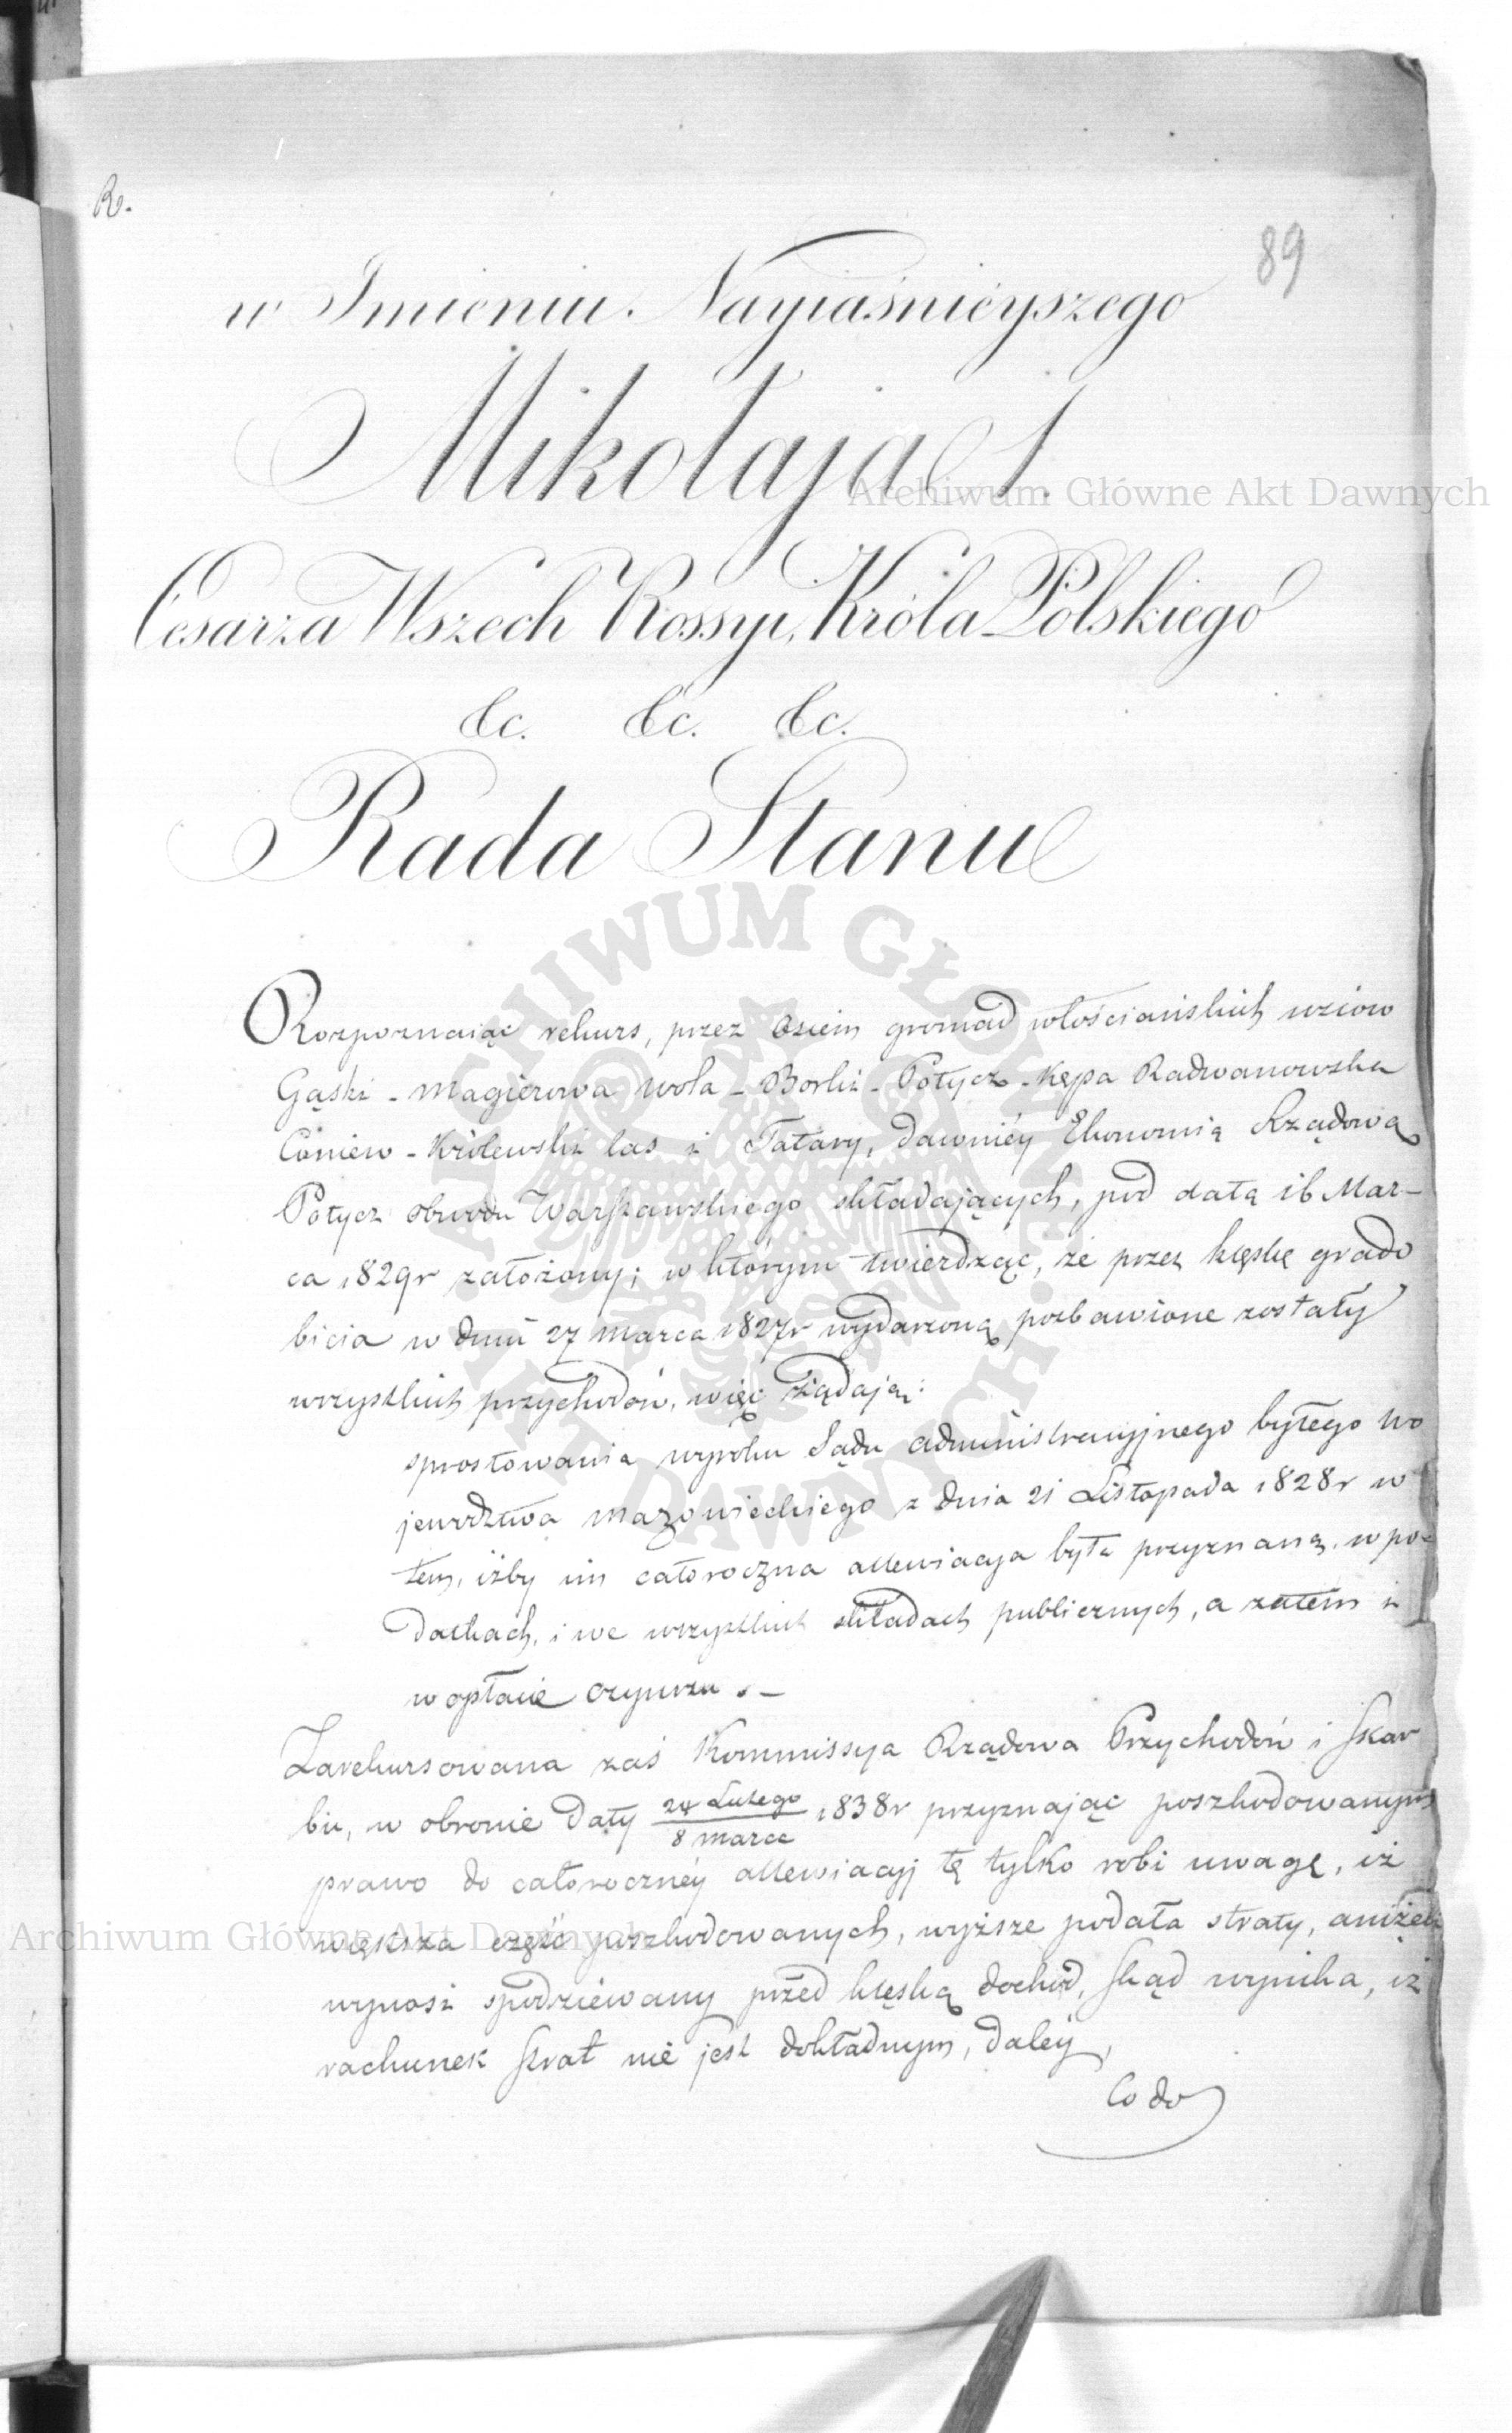 R.
89
w Imieniu Nayiaśnieyszego
Mikołaja I.
Cesarza Wszech Rossyi, Króla Polskiego
&c. &c. &c.
Rada Stanu
Rozpoznaiąc rekurs, przez Osiem gromad włościańskich wsiów
Gąski - Magierowa wola - Borki - Potycz - Kępa Radwanowska
Coniew - Królewski las i Tatary, dawniéy Ekonomią Rządową
Potycz obwodu Warszawskiego składających, pod datą 16 Mar-
ca 1829r założony; w którym twierdząc, że przez klęskę grado
bicia w dniu 27 marca 1827r wydarzoną pozbawione zostały
wszystkich przychodów, więc żądają:
sprostowania wyroku Sądu administracyjnego byłego Wo
jewództwa Mazowieckiego z dnia 21 Listopada 1828r w
tem, iżby im całoroczna allewiacya była przyznaną, w po-
datkach, i we wszystkich składach publicznych, a zatem i
w opłacie czynszu. -
Zarekursowana zaś Kommissya Rządowa Przychodów i Skar
bu, w obronie daty 24 Lutego / 8 marca 1838r przyznając poszkodowanym
prawo do całorocznéy allewiacyj tę tylko robi uwagę, iż
większa część poszkodowanych, wyższe podała straty, aniżeli
wynosi spodziewany przed klęską dochód, skąd wynika, iż
rachunek strat nie jest dokładnym, daléy,
Co do
Archiwum Główne Akt Dawnych
ARCHIWUM GŁÓWNE AKT DAWNYCH
Archiwum Główne Akt Dawnych